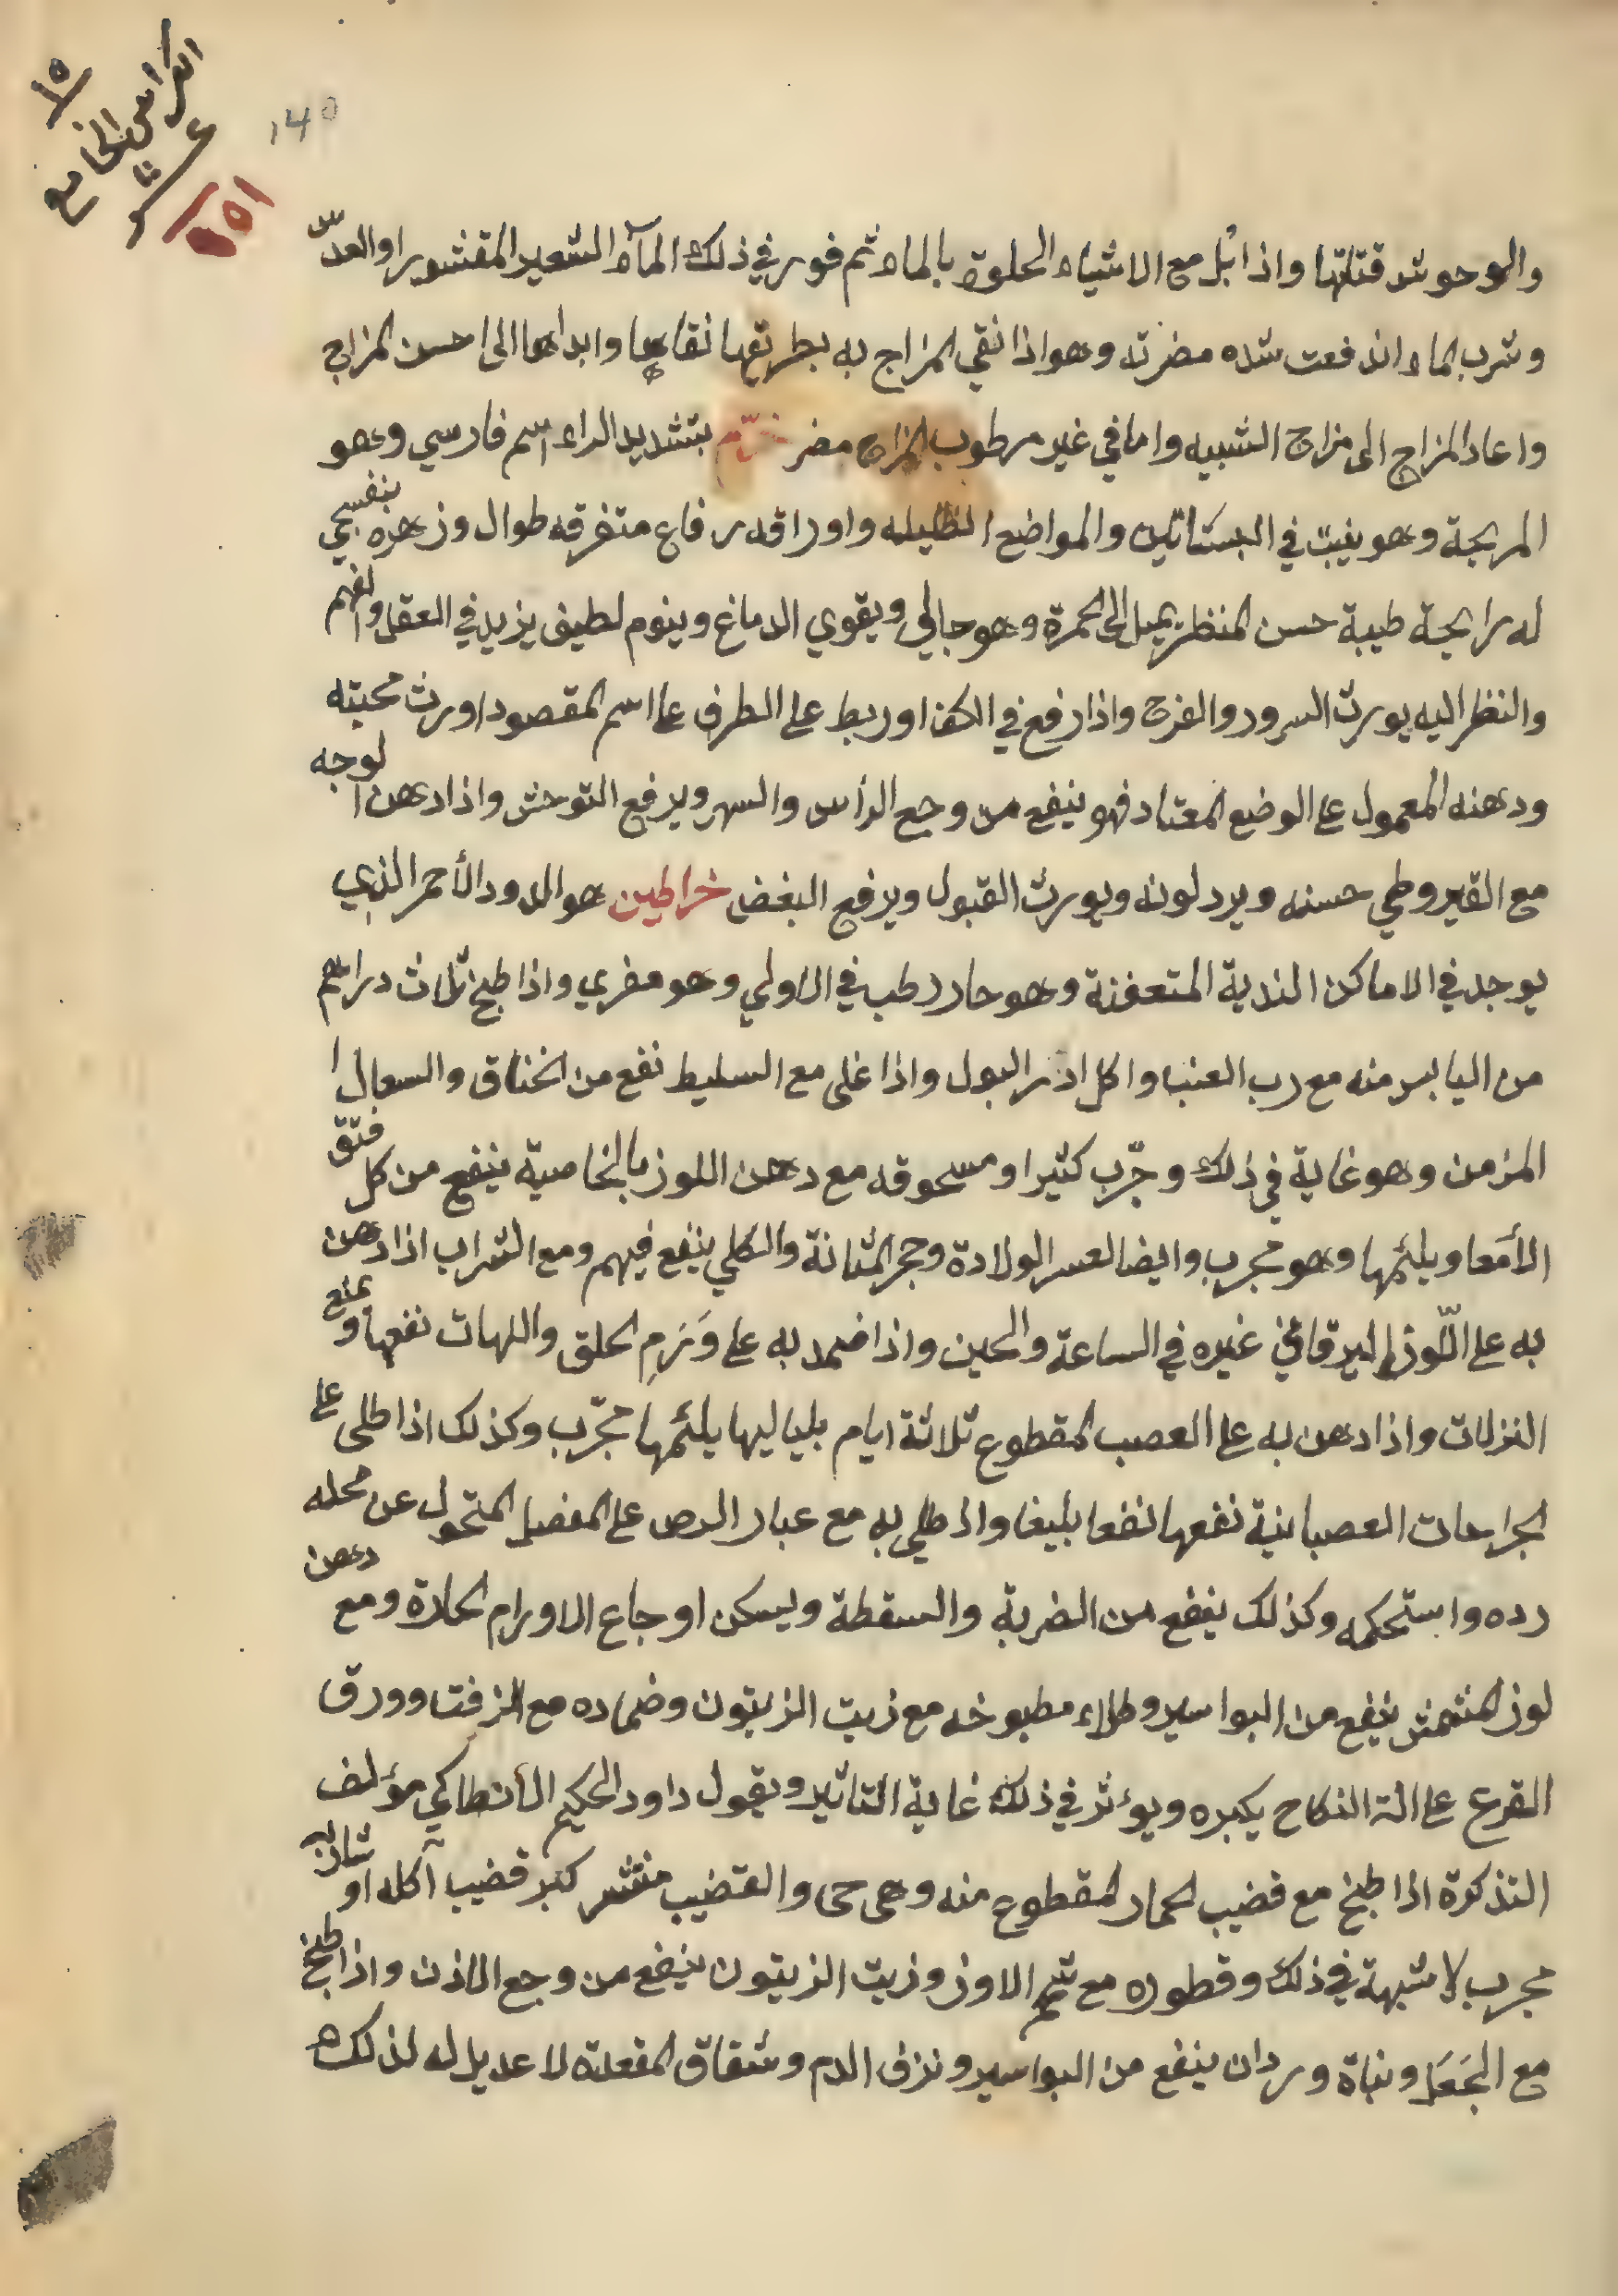 ١٥
الكراس الخامس
عشر
١٥١
140
والوحوش قتلتها واذا بُل مع الاشياء الحلوة بالماء ثم فور في ذلك المآء الشعير المقشور او العدس
وشرب الماء اندفعت شده مضرته وهو اذا نقي المزاج به بطريقها نقاها وابداها الى احسن المزاج
واعاد المزاج الى مزاج الشبيه واما في غير مرطوب المزاج مضر خرّم بتشديد الراء اسم فارسي وهو
المريحة وهو ينبت في البساتين والمواضع الظليله واوراقه رفاع متفرقه طوال وزهره بنفسجي
له رايحة طيبة حسن المنظر يميل الى الحمرة وهو جالي ويقوي الدماغ وينوم لطيف يزيد في العقل والفهم
والنظر اليه يورث السرور والفرح واذا رفع في الكف او ربط على الطرف على اسم المقصود اورث محبته
ودهنه المعمول على الوضع المعتاد فهو ينفع من وجع الرأس والسهر ويرفع التوحش واذا دهن الوجه
مع القيروطي حسنه ويرد لونه ويورث القبول ويرفع البغض خراطين هو الدود الأحمر الذي
يوجد في الاماكن الندية المتعفنة وهو حار رطب في الاولى وهو مغري واذا طبخ ثلاث دراهم
من اليابس منه مع رب العنب واكل ادر البول واذا غلى مع السليط نفع من الخناق والسعال ا
المزمن وهو غاية في ذلك وجرّب كثيرا ومسحوقه مع دهن اللوز بالخاصية ينفع من كل فتق
الأمعا ويلئمها وهو مجرب وايضا لعسر الولادة وحجر المثانة والكلي ينفع فيهم ومع الشراب اذا دهن
به على اللّوز اليرقان غيره في الساعة والحين واذا ضمد به على وَرَمِ الحلق واللهات نفعها ويمنع
النزلات واذا دهن به على العصب المقطوع ثلاثة ايام بلياليها يلئمها مجرّب وكذلك اذا طلى على
الجراحات العصبانية نفعها نفعا بليغا واذ طلي به مع غبار الرص على المفصل المتحول عن محله
رده واستحكمه وكذلك ينفع من الضربة والسقطة ويسكن اوجاع الاورام الحارة ومع دهن
لوز المشمش ينفع من البواسير وطلاء مطبوخه مع زيت الزيتون وضماده مع الزفت وورق
القرع على الة النكاح يكبره ويؤثر في ذلك غاية التاثير ويقول داود الحكيم الأنطاكي مؤلف
التذكرة اذا طبخ مع قضيب الحمار المقطوع منه وهى حى والقضيب منتشر كبر قضيب آكله او شاربه
مجرب لا شبهة في ذلك وقطوره مع شحم الاوز وزيت الزيتون ينفع من وجع الاذن واذا طبخ
مع الجَعَل وبناة وردان ينفع من البواسير ونزف الدم وشقاق المقعدة لا عديل له لذلك